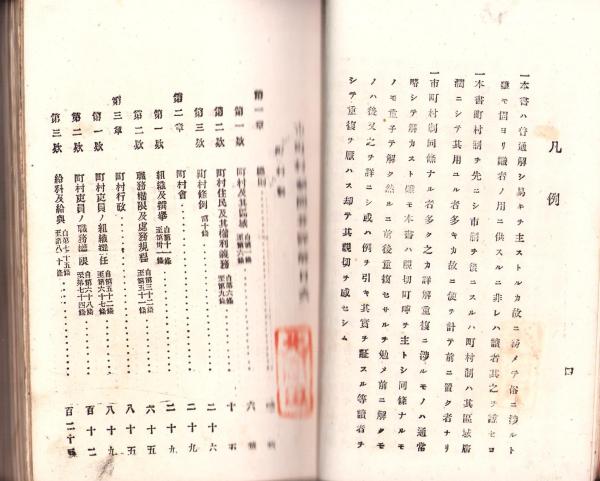 凡例
一本書ハ普通解シ易キヲ主ストルカ故ニ努メテ俗ニ渉ルト
雖モ固ヨリ識者ノ用ニ供スルニ非レハ讀者其之ヲ諒セヨ
一本書町村制ヲ先ニシ市制ヲ後ニスルハ町村制ハ其區域廣
濶ニシテ其用ユル者多キカ故ニ便ヲ計テ前ニ置ク者ナリ
一市町村制同條ナル者多ク之カ詳解重複ニ渉ルモノハ通常
略シテ解カスト雖モ本書ハ親切叮嚀ヲ主トシ同條ナルモ
ノモ重子テ解ク然ルニ前後重複セサルヲ勉メ前ニ解クモ
ノハ後又之ヲ詳ニシ或ハ例ヲ引キ其實ヲ証スル等讀者ヲ
シテ重複ヲ厭ハス却テ其親切ヲ感セシム
町村制
第一章 總則
第一欵 町村及其區域 六
第二欵 町村住民及其權利義務 自第六條至第九條 十五
第三欵 町村條例 第十條 二十六
第二章 町村會 二十九
第一欵 組織及撰擧 二十九
第二欵 職務權限及處務規程 自第三十二條至第五十一條 六十五
第三章 町村行政 八十五
第一欵 町村吏員ノ組織選任 自第五十二條至第六十七條 八十九
第二欵 町村吏員ノ職務權限 自第六十八條至第七十四條 百十二
第三欵 給料及給與 自第七十五條至第八十條 百二十